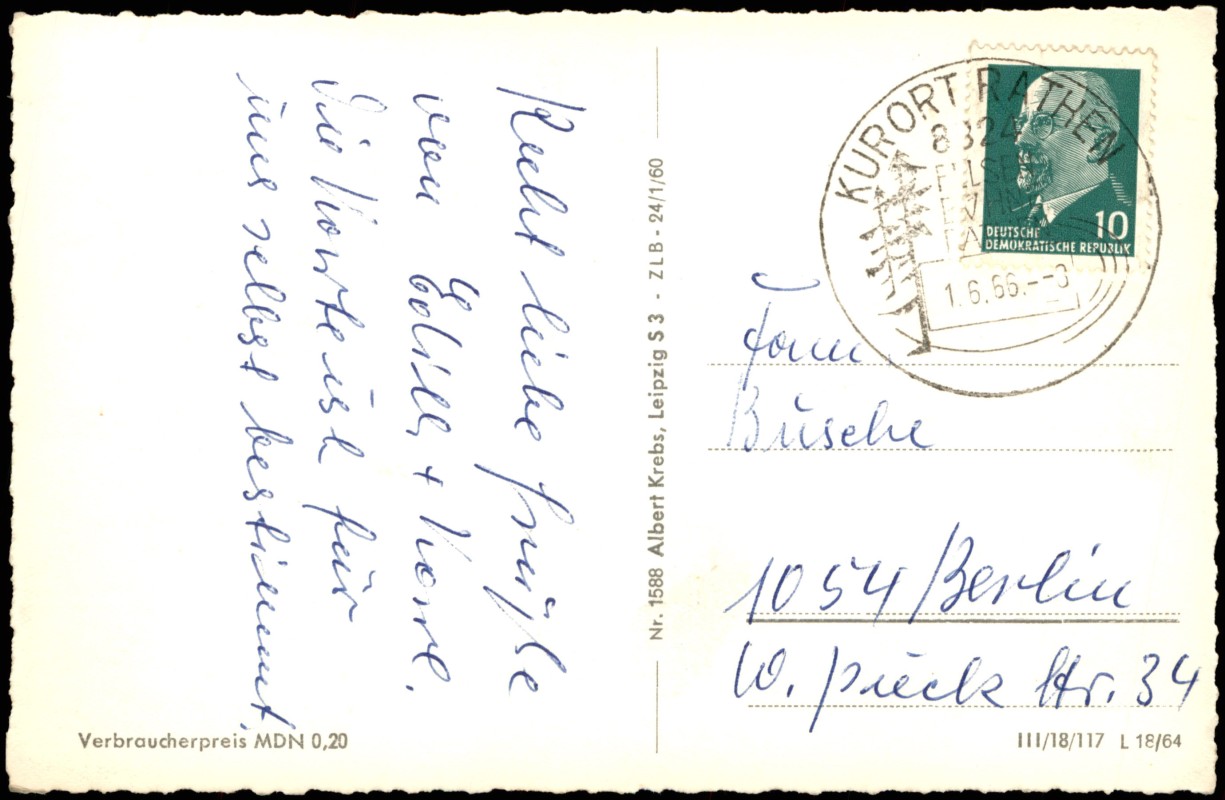 Recht liebe Grüße
von Edith + Horst.
Die Karte ist für
uns selbst bestimmt.
Verbraucherpreis MDN 0,20
Nr. 1588 Albert Krebs, Leipzig S 3 - ZLB - 24/1/60
KURORT RATHEN
8324
FELSEN
1.6.66.--8
10
DEUTSCHE
DEMOKRATISCHE REPUBLIK
Büsche
1054 Berlin
W. Pieck Str. 34
III/18/117 L 18/64